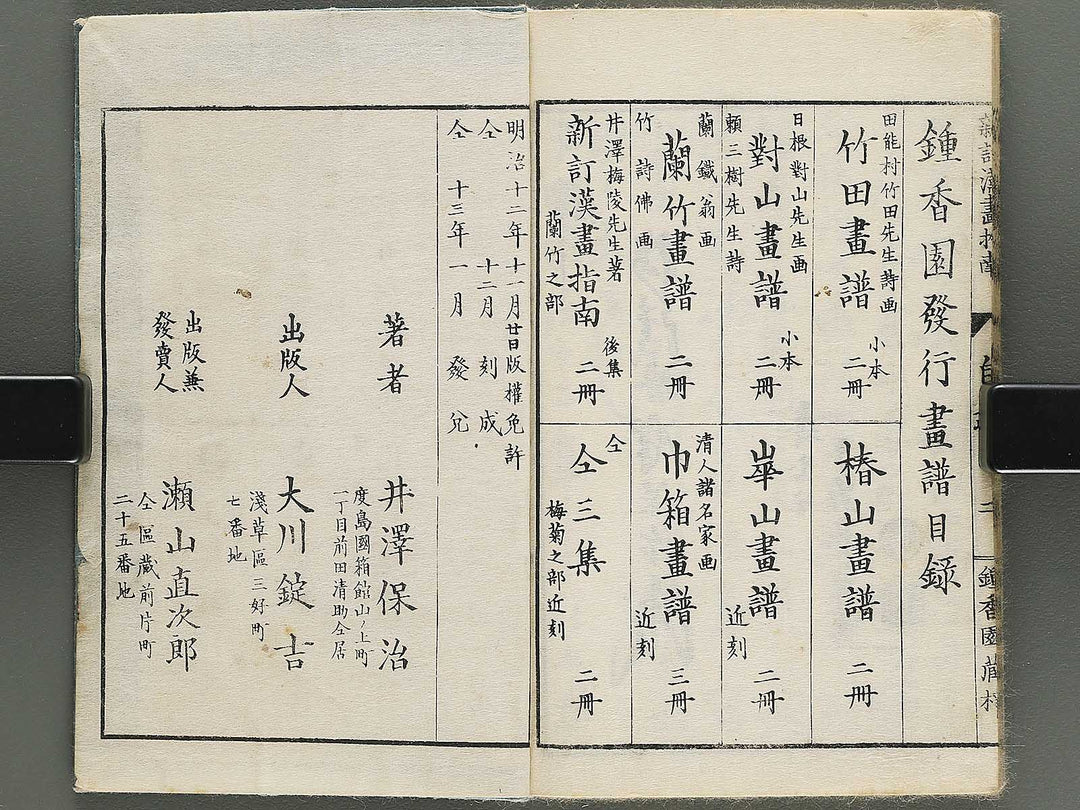 鍾香園發行畫譜目録
田能村竹田先生詩画
竹田畫譜 小本 二冊
椿山畫譜 二冊
日根對山先生画
對山畫譜 小本 二冊
崋山畫譜 近刻 二冊
頼三樹先生詩
蘭 鐵翁画
蘭竹畫譜 二冊
竹 詩佛画
清人諸名家画
巾箱畫譜 近刻 三冊
井澤梅陵先生著
新訂漢畫指南 後集 二冊
蘭竹之部
仝
仝三集 二冊
梅菊之部近刻
新訂漢畫指南
鍾香園蔵
明治十二年十一月廿日版權免許
仝 十二月 刻成
仝 十三年一月 發兌
著者 井澤保治
度島國箱館山ノ上町
一丁目前田清助仝居
出版人 大川錠吉
淺草區三好町
七番地
出版兼
發賣人 瀬山直次郎
仝區蔵前片町
二十五番地